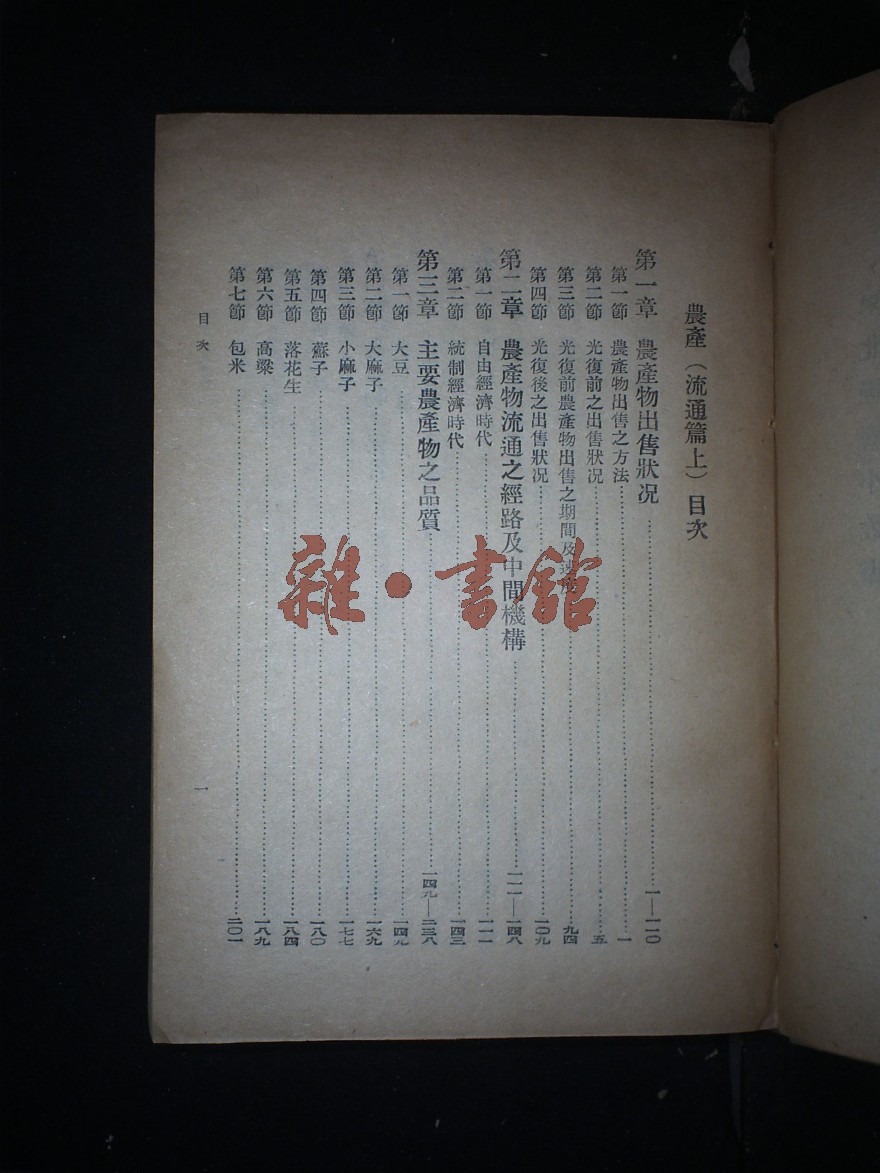 農產（流通篇上）目次
第一章　農產物出售狀况……一—一一〇
第一節　農產物出售之方法……一
第二節　光復前之出售狀况……五
第三節　光復前農產物出售之期間及速度……九四
第四節　光復後之出售狀况……一〇九
第二章　農產物流通之經路及中間機構……一一一—一四八
第一節　自由經濟時代……一一一
第二節　統制經濟時代……一四三
第三章　主要農產物之品質……一四九—二三八
第一節　大豆……一四九
第二節　大麻子……一六九
第三節　小麻子……一七七
第四節　蘇子……一八〇
第五節　落花生……一八四
第六節　高粱……一八九
第七節　包米……二〇一
目次
一
雜·書館